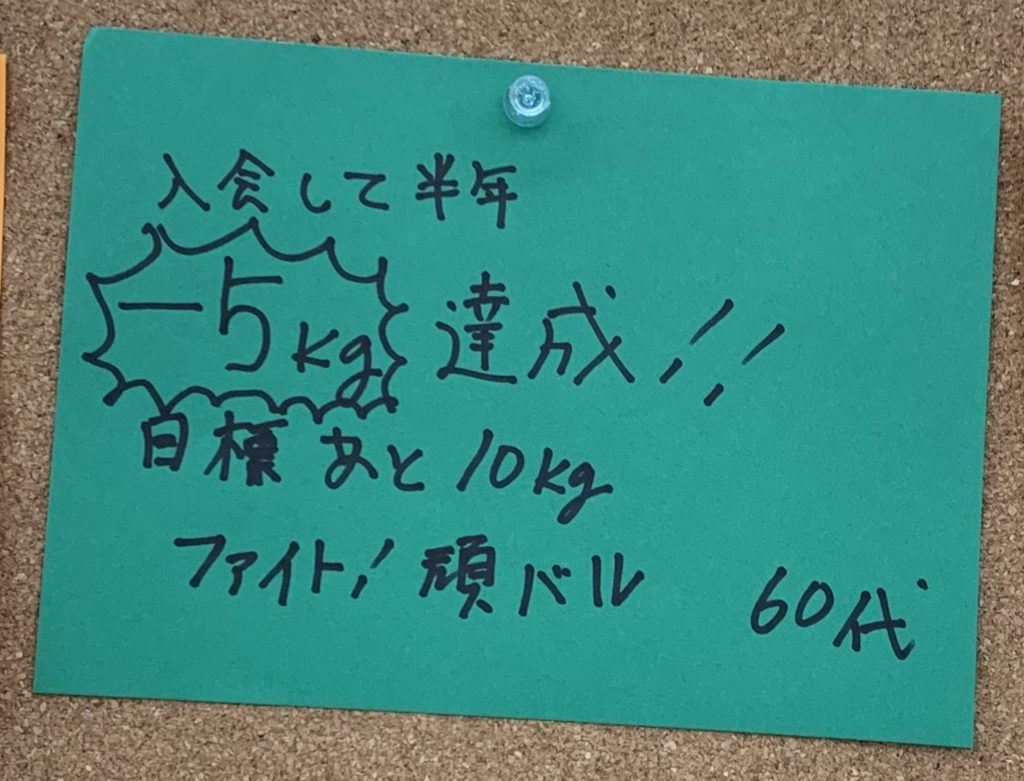 入会して半年
-5kg 達成!!
目標あと10kg
ファイト!頑バル
60代